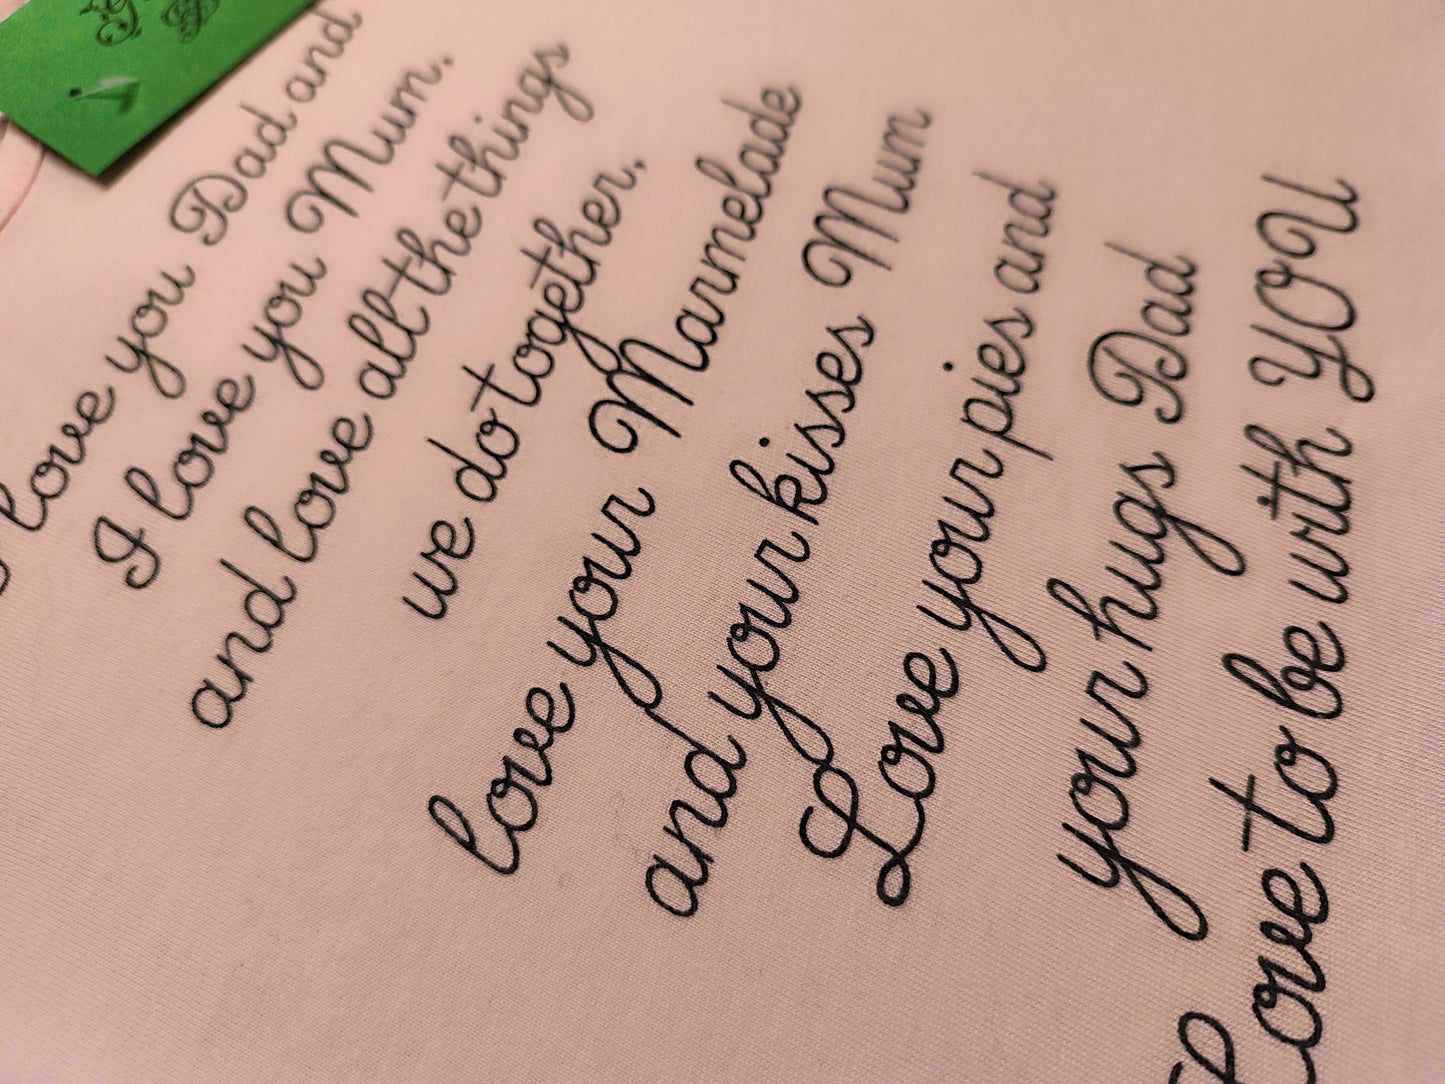 love you Dad and
I love you Mum.
and love all the things
we do together.
love your Marmelade
and your kisses Mum
Love your pies and
your hugs Dad
Love to be with YOU